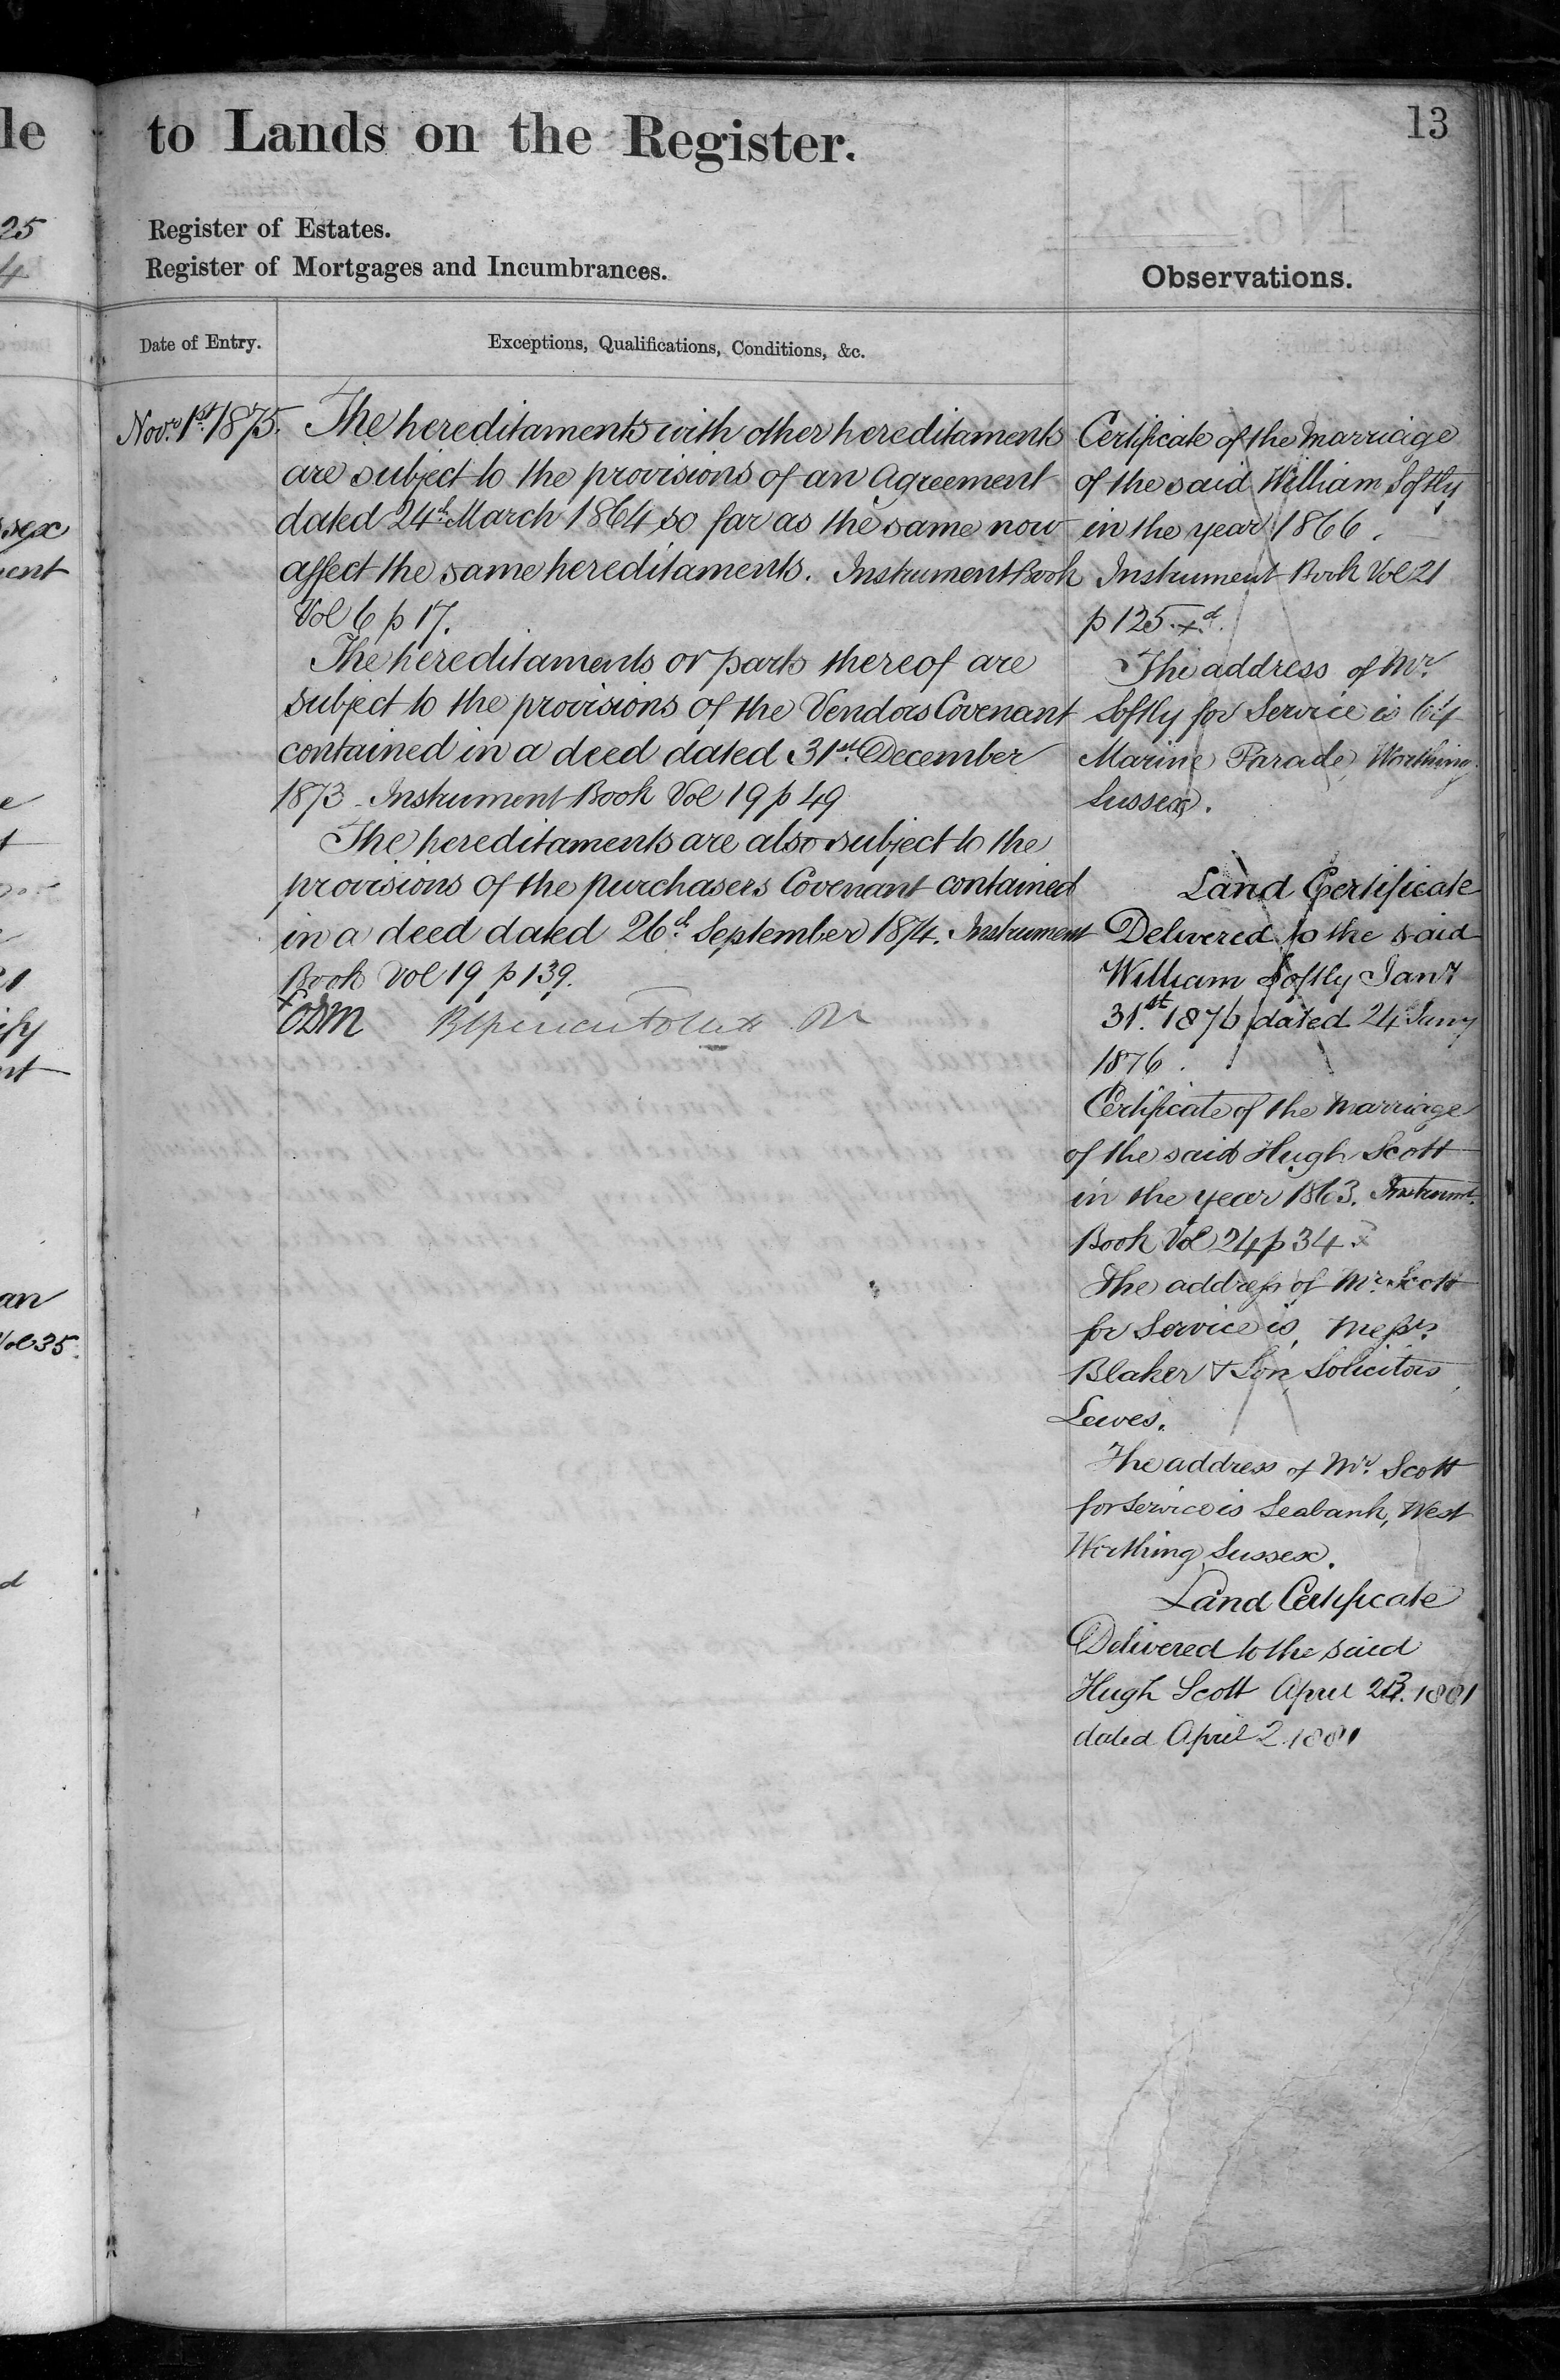 le
25
4
ssex
ent
e
t
21
ify
nt
an
Vol 35.
d
to Lands on the Register.
13
Register of Estates.
Register of Mortgages and Incumbrances.
Observations.
Date of Entry.
Exceptions, Qualifications, Conditions, &c.
Novr. 1st. 1875.
The hereditaments with other hereditaments
are subject to the provisions of an Agreement
dated 24th March 1864 so far as the same now
affect the same hereditaments. Instrument Book
Vol 6 p 17.
The hereditaments or parts thereof are
subject to the provisions of the Vendors Covenant
contained in a deed dated 31st December
1873 - Instrument Book Vol 19 p 49
The hereditaments are also subject to the
provisions of the purchasers Covenant contained
in a deed dated 26th September 1874. Instrument
Book Vol 19 p 139.
Certificate of the Marriage
of the said William Softly
in the year 1866.
Instrument Book Vol 21
p 125
The address of Mr.
Softly for Service is
Marine Parade, Worthing
Sussex.
Land Certificate
Delivered to the said
William Softly Jany
31st. 1876 dated 24 Jany
1876.
Certificate of the Marriage
of the said Hugh Scott
in the year 1863. Instrumt.
Book Vol 24 p 34
The address of Mr. Scott
for Service is, Messrs.
Blaker & Son, Solicitors
Lewes.
The address of Mr. Scott
for service is Seabank, West
Worthing Sussex.
Land Certificate
Delivered to the said
Hugh Scott April 1881
dated April 2. 1881